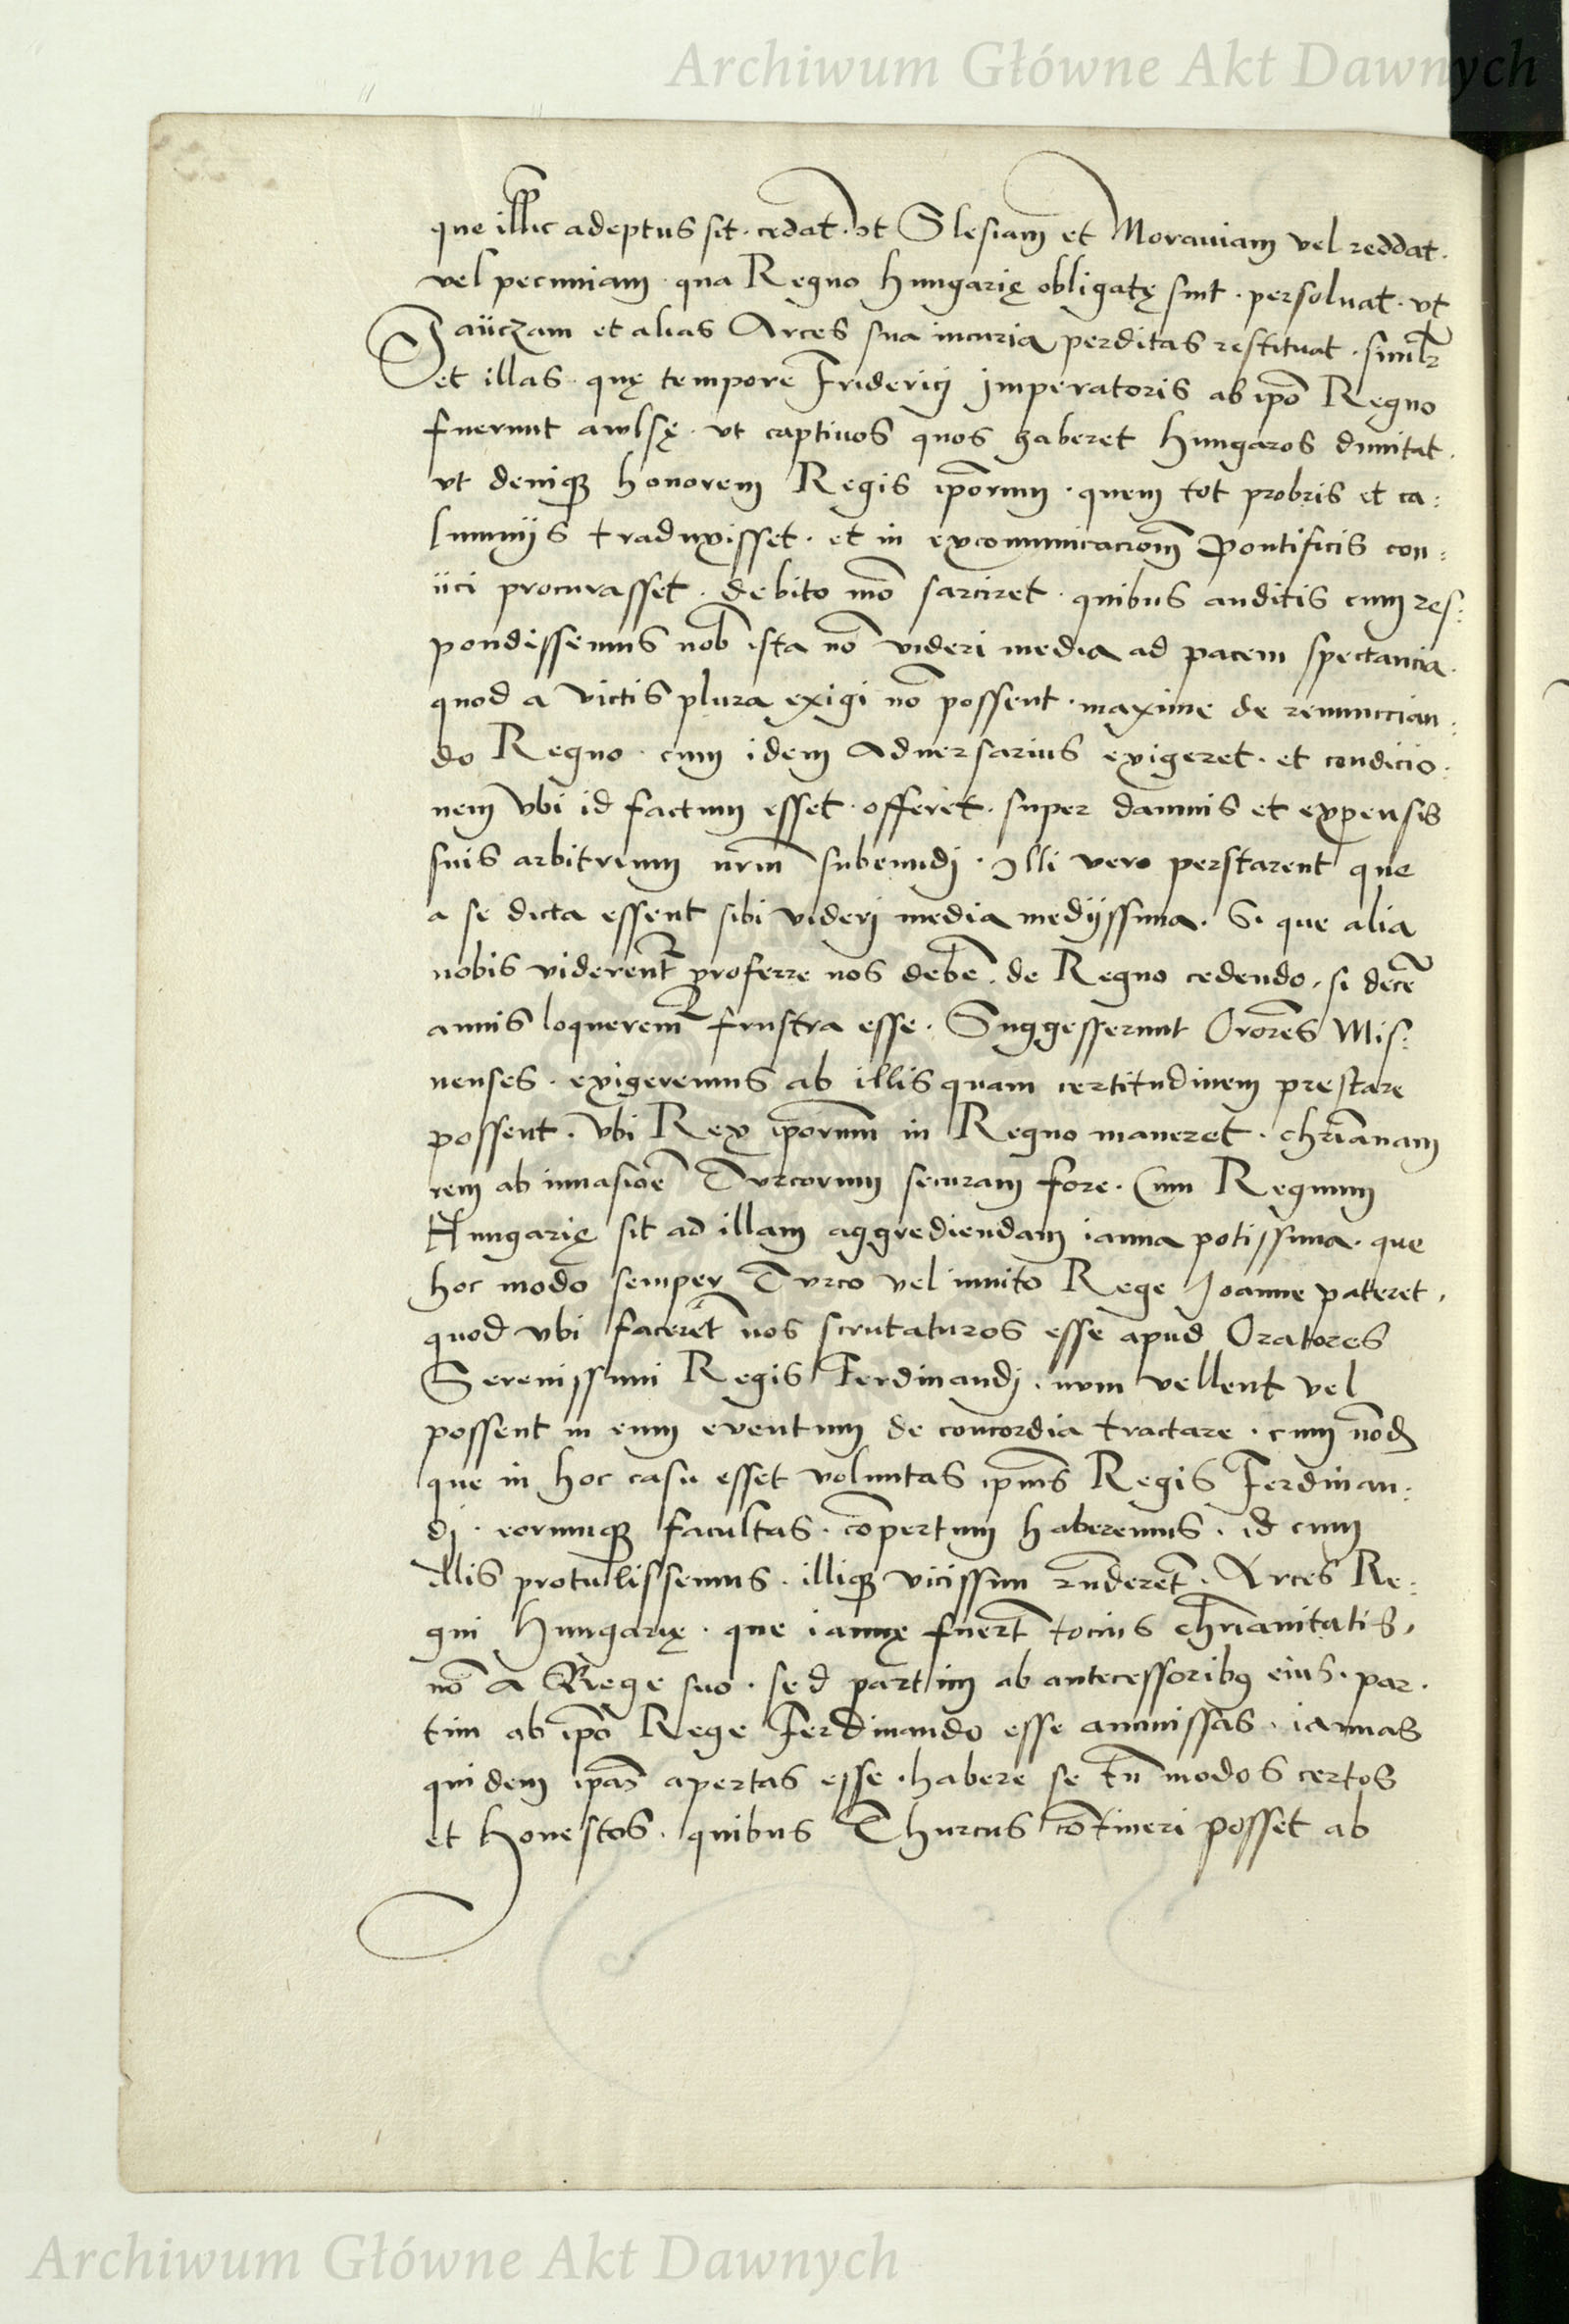 Archiwum Główne Akt Dawnych
que illic adeptus sit · cedat · vt Slesiam et Morauiam vel reddat ·
vel pecuniam · qua Regno Hungarię obligatę sint · persoluat · vt
Jaüczam et alias Arces sua incuria perditas restituat · similr
et illas · quę tempore Friderici Imperatoris ab ipo Regno
fuerunt awlsę · vt captiuos quos haberet Hungaros dimitat ·
vt deniqꝫ honorem Regis ipõrum · quem tot probris et ca:
lumnijs traduxisset · et in excomunicacionẽ Pontificis con:
iici procurasset · debito mõ sarciret · quibus auditis cum res:
pondissemus nob ista nõ videri media ad pacem spectancia ·
quod a victis plura exigi nõ possent · maxime de renunccian:
do Regno · cum idem Aduersarius exigeret · et condicio:
nem vbi id factum esset · offeret · super damnis et expensis
suis arbitrium nrm̃ subeundj · Illi vero perstarent que
a se dicta essent sibi viderj media medijssima · Si que alia
nobis viderent proferre nos debẽ · de Regno cedendo, si decẽ
annis loquerem frustra esse · Suggesserunt Orõres Mis:
nenses · exigeremus ab illis quam certitudinem prestare
possent · vbi Rex ipõrum in Regno maneret · chrianam
rem ab inuasiõe Turcorum securam fore · Cum Regnum
Hungarię sit ad illam aggrediendam ianua potissima · que
hoc modo semper Turco vel inuito Rege Joanne pateret,
quod vbi facerẽt nos scrutaturos esse apud Oratores
Serenissimi Regis Ferdinandj · num vellent vel
possent in eum euentum de concordia tractare · cum nõdꝫ
que in hoc casu esset voluntas ipius Regis Ferdinan:
dj · eorumqꝫ facultas · cõpertum haberemus · id cum
illis protulissemus · illiqꝫ vicissim rñderẽt · Arces Re:
gni Hungarię · que ianuę fuert̃ tocius chrianitatis,
nõ a Rege suo · sed partim ab antecessoribꝰ eius · par:
tim ab ipõ Rege Ferdinando esse ammissas · ianuas
quidem ipas apertas esse · habere se tñ modos certos
et honestos · quibus Thurcus cõtineri posset ab
Archiwum Główne Akt Dawnych